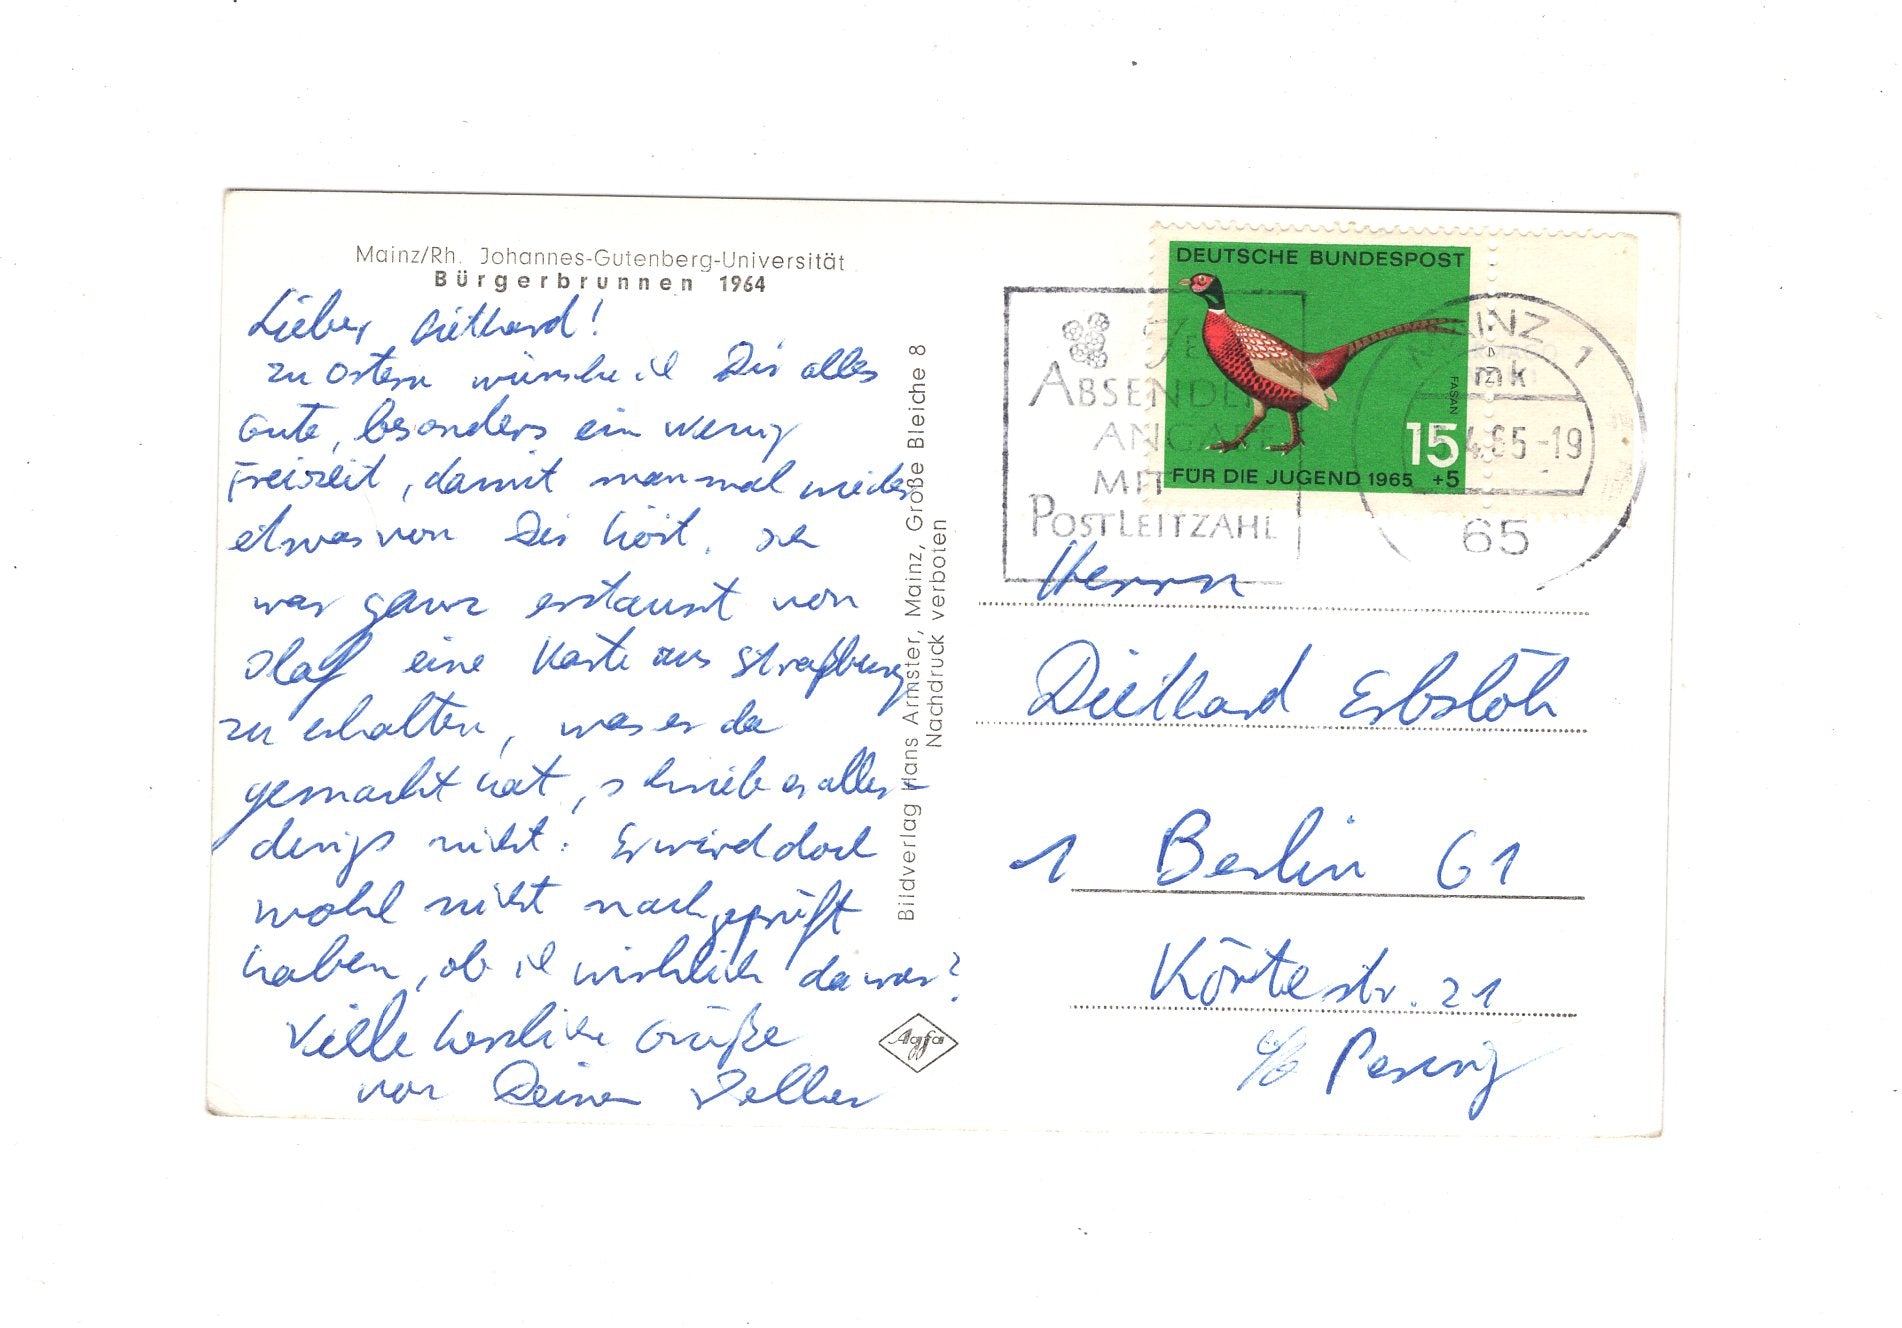 Mainz/Rh. Johannes-Gutenberg-Universität
Bürgerbrunnen 1964
Lieber Diethard!
zu Ostern wünsche ich Dir alles
Gute, besonders ein wenig
Freizeit, damit man mal wieder
etwas von Dir hört. Ich
war ganz erstaunt von
Olaf eine Karte aus Straßburg
zu erhalten, was er da
gemacht hat, schrieb er aller-
dings nicht. Er wird doch
wohl nicht nachgeprüft
haben, ob ich wirklich da war?
Viele herzliche Grüße
von Deinem
Bildverlag Hans Armster, Mainz, Große Bleiche 8
Nachdruck verboten
Agfa
DEUTSCHE BUNDESPOST
FASAN
15
FÜR DIE JUGEND 1965 +5
ABSENDER
ANGA
MIT
POSTLEITZAHL
MAINZ 1
mk
4.65-19
65
Herrn
Diethard Erbslöh
1 Berlin 61
Körtestr. 21